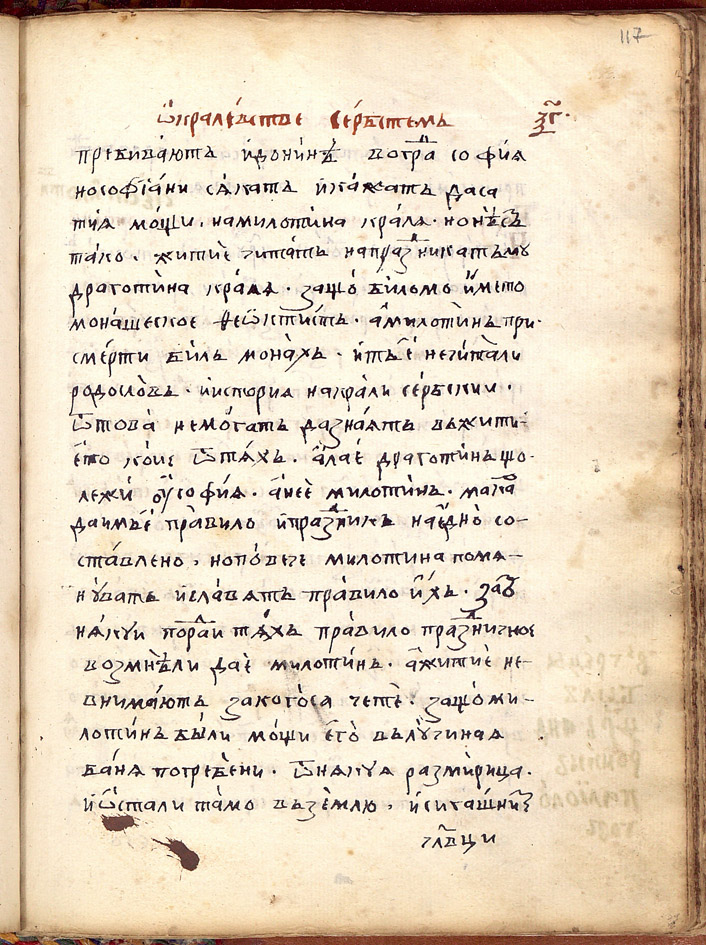 117
ѡ кралевстве сербстемъ ѯ҃г
пребиваютъ и до нинѣ в град софїѧ
но софїани сѧкатъ и кажатъ да са
тиѧ мощи на милотина кралѧ но нѣсть
тако житїе читатъ на празникатъ мꙋ
драготина кралѧ защо било мо името
монашеское ѳеѡктистъ а милотинъ при
смерти билъ монахъ и тїе не читали
родословъ и история на крали сербскии
ѿ това не могатъ да знаѧтъ в жити
его кои е ѿ тѧхъ ала е драготинъ що
лежи ꙋ софїѧ а не е милотинъ мака
да им е правило и празникъ на едно со-
ставлено но повече милотина помѧ-
нꙋватъ и славѧтъ правило ихъ заꙋ
нѧкꙋи поради тѧхъ правило празничное
возмнѣли да е милотинъ а житїе не
внимаютъ за кого са чете защо ми-
лотинъ были мощи его въ лꙋчинаѧ
банѧ погребени ѿ нѧкꙋѧ размирица
и ѡстали тамо въ землю и сигашни
ловци